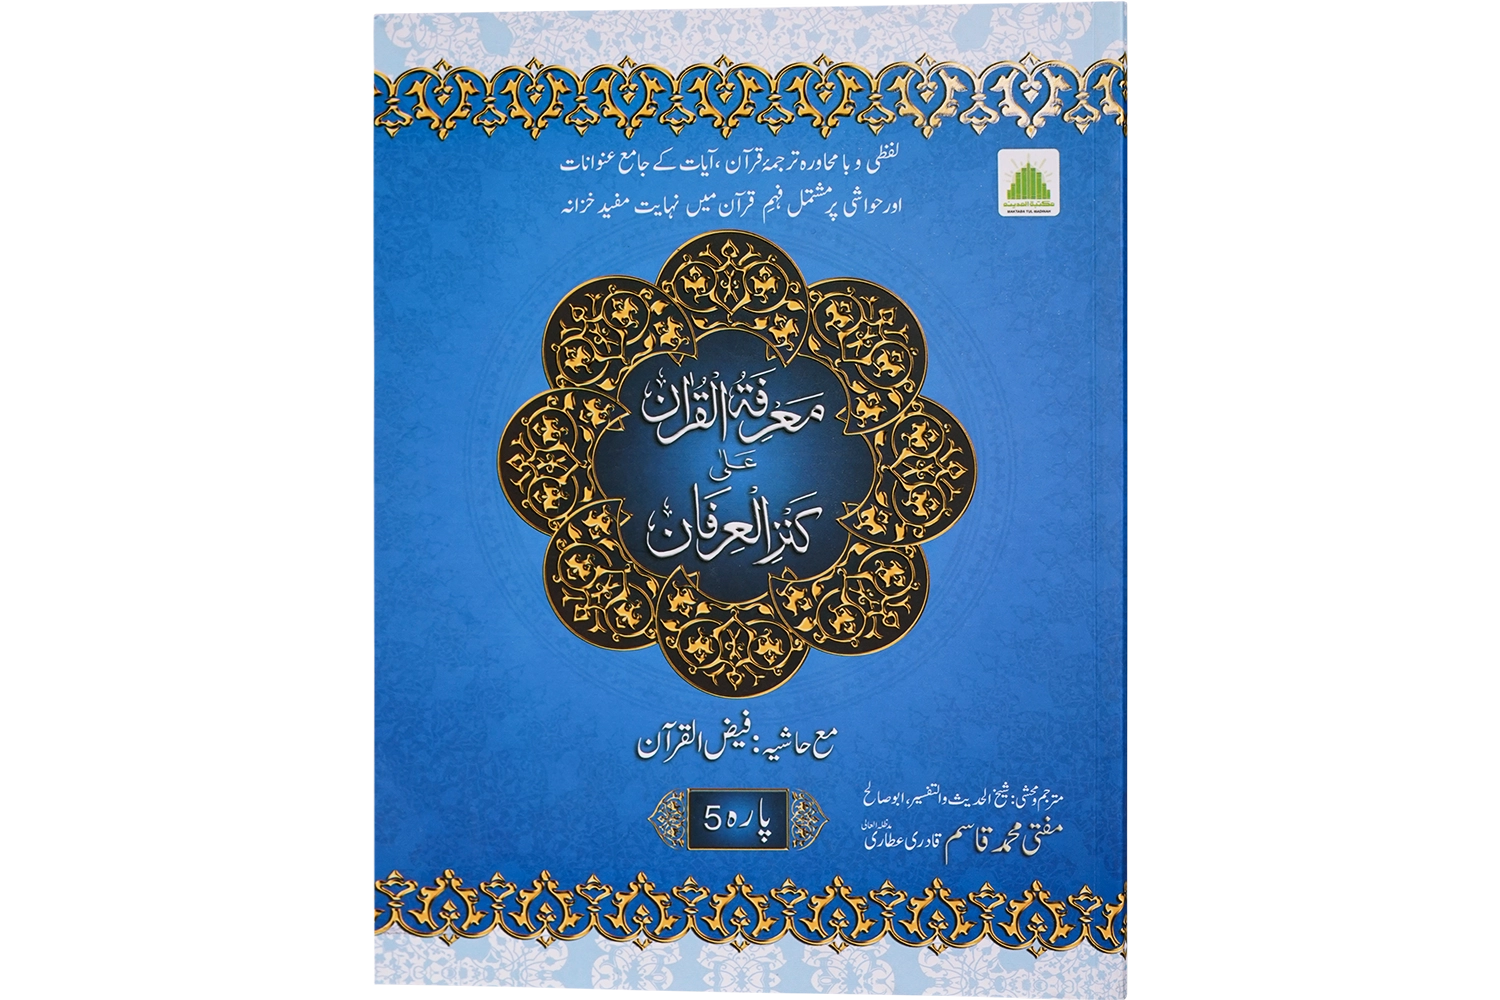 لفظی و بامحاورہ ترجمۂ قرآن، آیات کے جامع عنوانات
اور حواشی پر مشتمل فہمِ قرآن میں نہایت مفید خزانہ
مکتبۃ المدینہ
MAKTABA TUL MADINAH
مَعْرِفَۃُ الْقُرْاٰن
عَلٰی
کَنْزِ الْعِرْفَان
مع حاشیہ: فیض القرآن
پارہ 5
مترجم و محشی: شیخ الحدیث والتفسیر، ابو صالح
مفتی محمد قاسم قادری عطاری مدظلہ العالی